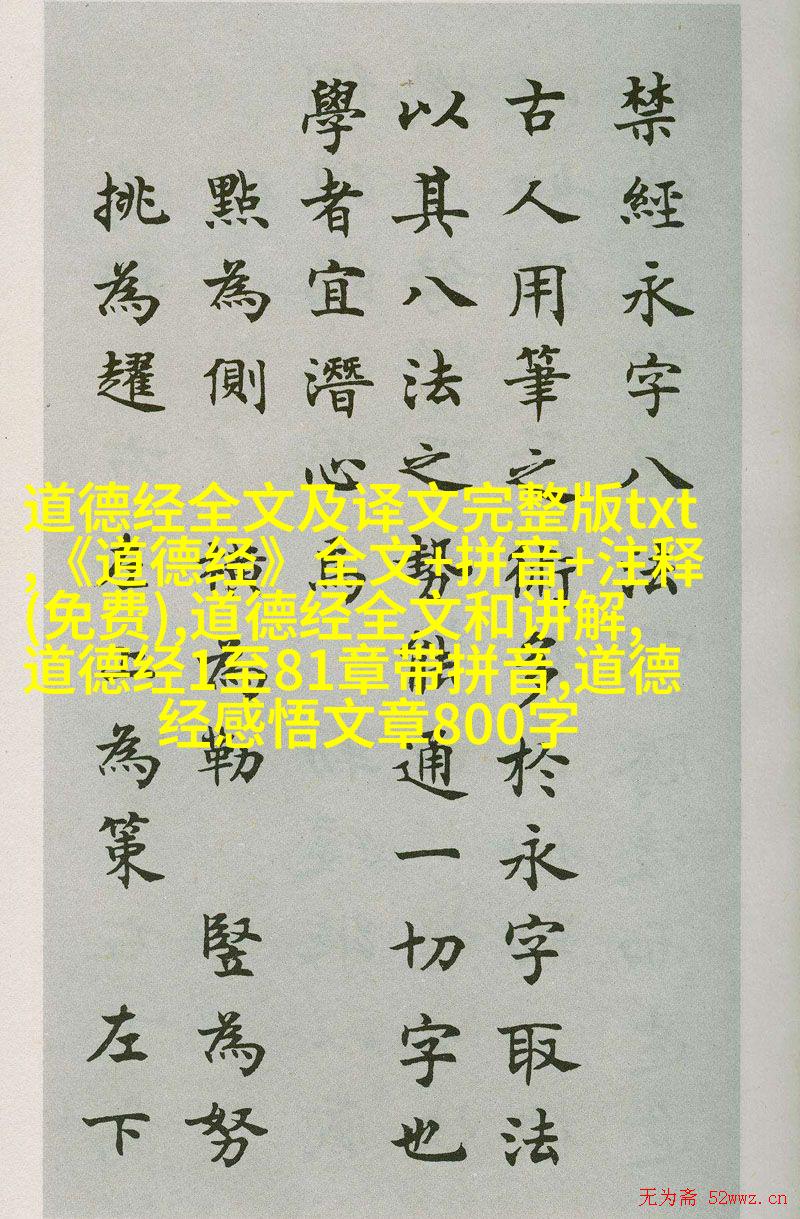 禁經永字八法
古人用筆之術多於永字取法
以其八法之勢能通一切字也
學者宜潛心焉
點為側 橫為勒 竪為努
挑為趯 為策 左下
道德经全文及译文完整版txt
,《道德经》全文+拼音+注释
(免费),道德经全文和讲解,
道德经1至81章带拼音,道德
经感悟文章800字
无为斋 52wwz.cn